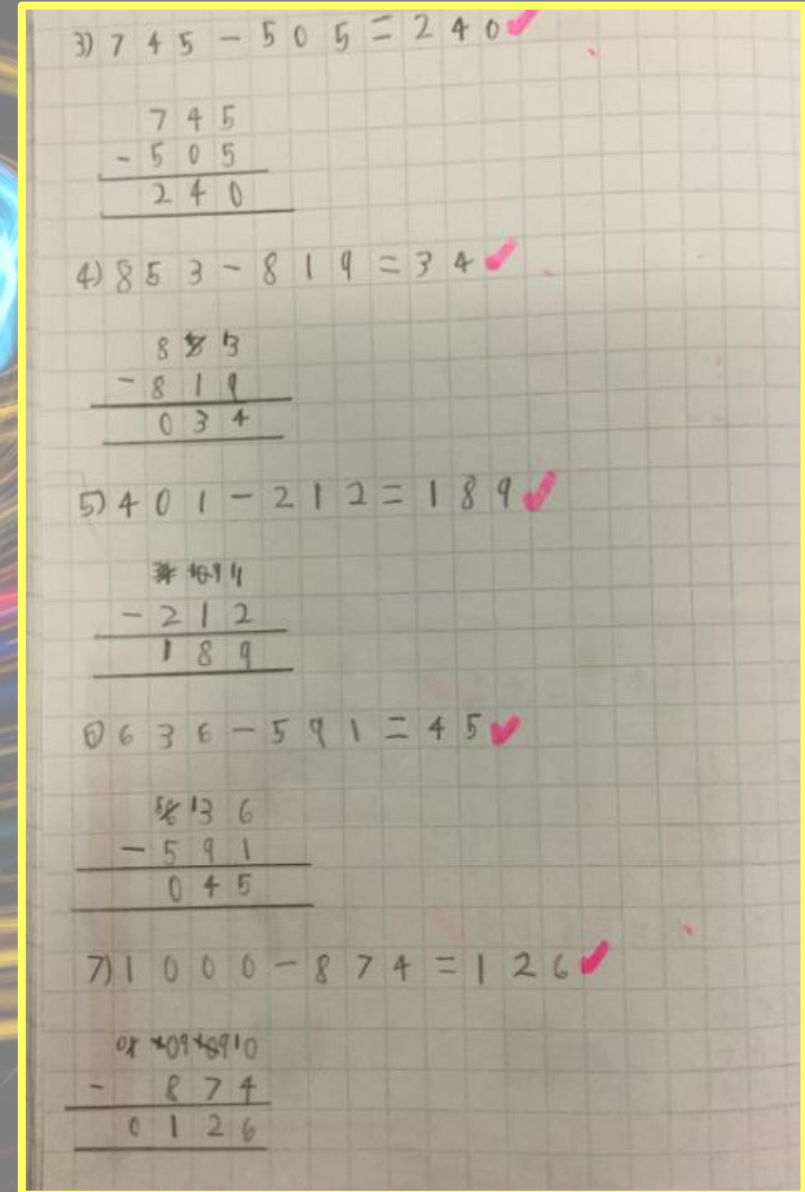 3) 745 - 505 = 240
745
- 505
240
4) 853 - 819 = 34
8 13
- 819
034
5) 401 - 212 = 189
- 212
189
6) 636 - 591 = 45
5 13 6
- 591
045
7) 1000 - 874 = 126
- 874
0126